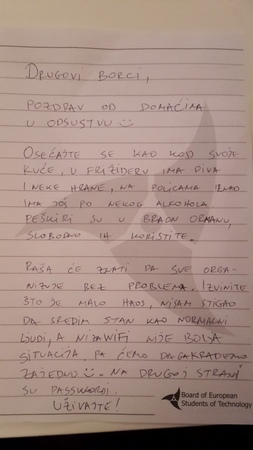 DRUGOVI BORCI,
POZDRAV OD DOMAĆINA
U ODSUSTVU
OSEĆAJTE SE KAO KOD SVOJE
KUĆE, U FRIŽIDERU IMA PIVA
I NEKE HRANE, NA POLICAMA IZNAD
IMA JOŠ PO NEKOG ALKOHOLA
PEŠKIRI SU U BRAON ORMANU,
SLOBODNO IH KORISTITE.
RAŠA ĆE ZNATI DA SVE ORGA-
NIZUJE BEZ PROBLEMA. IZVINITE
ŠTO JE MALO HAOS, NISAM STIGAO
DA SREDIM STAN KAO NORMALNI
LJUDI, A NI WIFI NIJE BOLJA
SITUACIJA, PA ĆEMO DA GA KRADEMO
ZAJEDNO. NA DRUGOJ STRANI
SU PASSWORDI.
UŽIVAJTE!
Board of European
Students of Technology